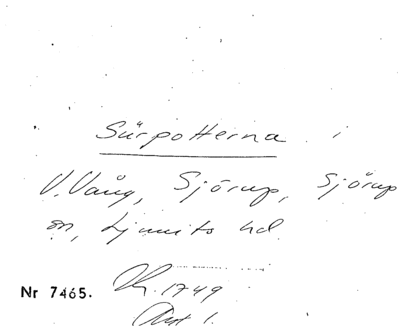 Sürpotterna i
V. Vång, Sjörup, Sjörup
sn, Ljunits hd.
Nr 7465.
1749